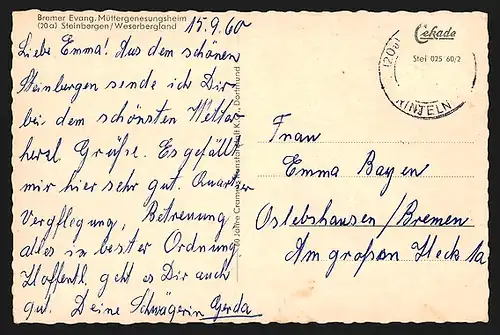 Bremer Evang. Müttergenesungsheim
(20a) Steinbergen / Weserbergland
15.9.60
Liebe Emma! Aus dem schönen
Steinbergen sende ich Dir
bei dem schönsten Wetter
herzl. Grüße. Es gefällt
mir hier sehr gut. Quartier
Verpflegung, Betreuung
alles in bester Ordnung.
Hoffentl. geht es Dir auch
gut. Deine Schwägerin Gerda
Cekade
Stei 025 60/2
RINTELN
Frau
Emma Bayen
Oslebshausen/Bremen
Am großen Heck 1a